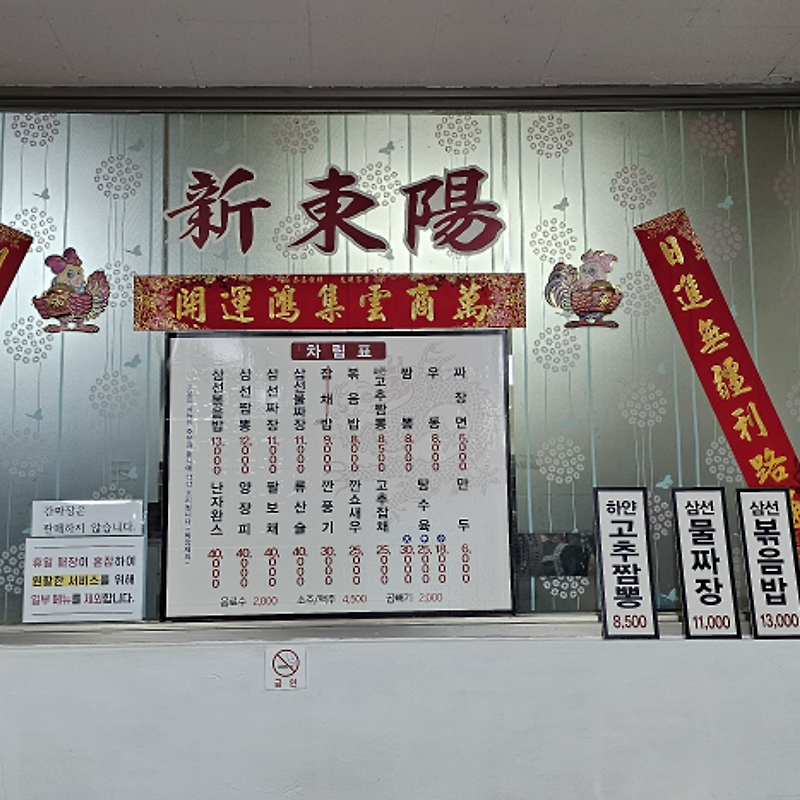 新東陽
開運鴻集雲商萬
日進無疆利路
차림표
짜장면 5,000
우동 8,000
짬뽕 8,000
고추짬뽕 8,500
볶음밥 8,000
잡채밥 9,000
삼선물짜장 11,000
삼선짜장 11,000
삼선짬뽕 12,000
삼선볶음밥 13,000
만두 6,000
탕수육 30,000 25,000 18,000
고추잡채 25,000
깐쇼새우 25,000
깐풍기 30,000
류산슬 40,000
팔보채 40,000
양장피 40,000
난자완스 40,000
음료수 2,000 소주/맥주 4,500 곱빼기 2,000
간짜장은
판매하지 않습니다.
휴일 매장이 혼잡하여
원활한 서비스를 위해
일부 메뉴를 제외합니다.
하얀
고추짬뽕
8,500
삼선
물짜장
11,000
삼선
볶음밥
13,000
금연